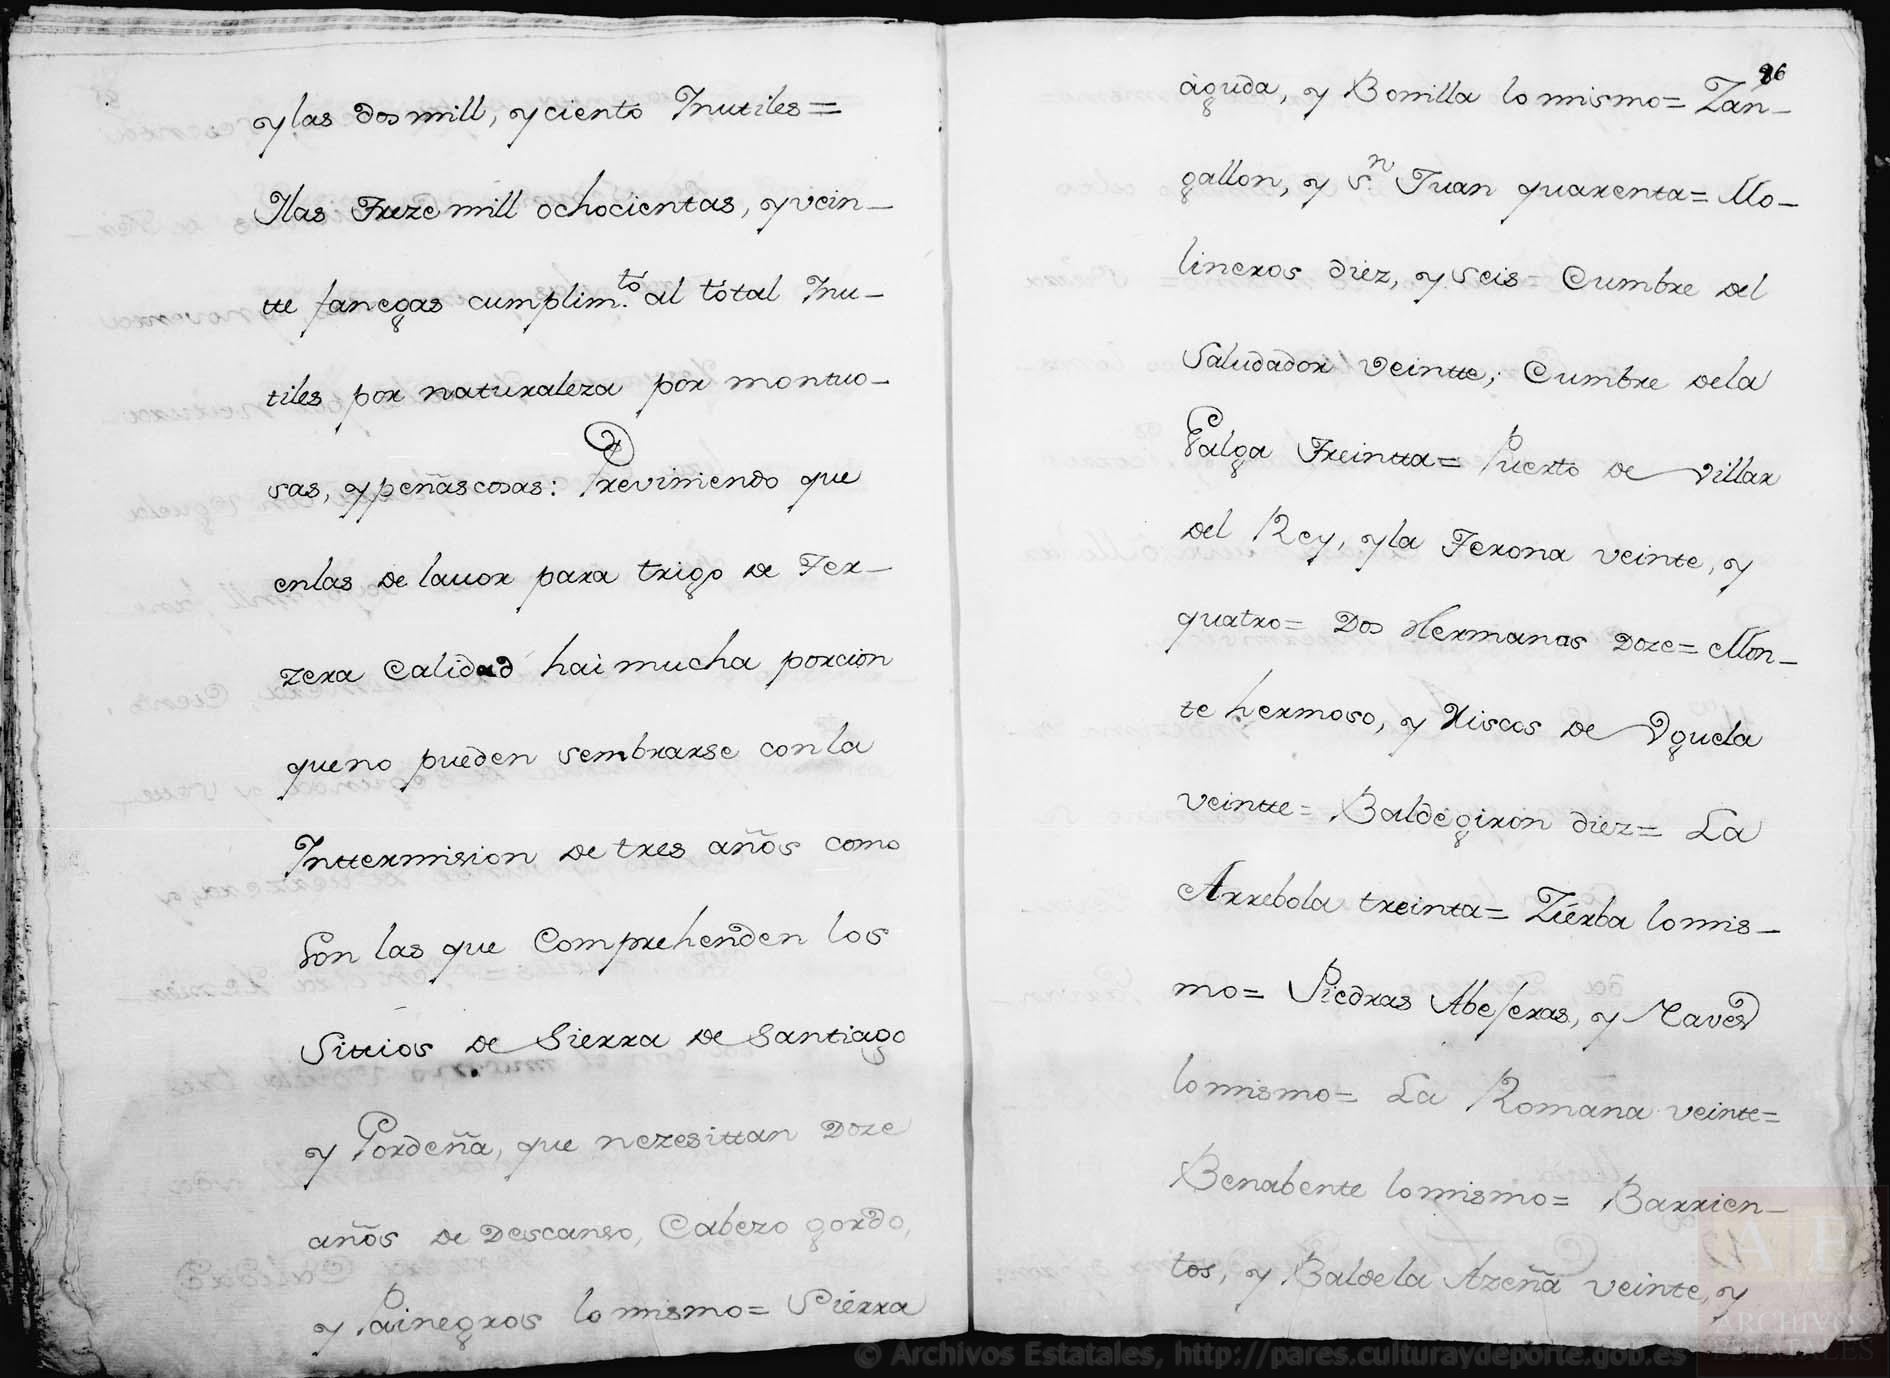 y las dos mill, y ciento Inutiles =
Ylas Treze mill ochocientas, y vein-
tte fanegas cumplim.to al total Inu-
tiles por naturaleza por montuo-
sas, y peñascosas: Previniendo que
enlas de lauor para trigo de Ter-
zera Calidad hai mucha porcion
queno pueden sembrarse conla
Inttermision de tres años como
Son las que Comprehenden los
Sittios de Sierra de Santiago
y Pordeña, que nezesittan Doze
años de Descanso, Cabezo gordo,
y Painegros lo mismo = Sierra
96
aguda, y Borrilla lo mismo = Zan-
gallon, y S.n Juan quarenta = Mo-
lineros diez, y seis = Cumbre del
Saludador veintte; Cumbre dela
Galga Treintta = Puerto de Villar
del Rey, y la Terona veinte, y
quatro = Dos Hermanas Doze = Mon-
te hermoso, y Riscos de Vguela
veintte = Baldegiron diez = La
Arrebola treinta = Zierba lo mis-
mo = Piedras Abejeras, y
lo mismo = La Romana veinte =
Benabente lo mismo = Barrien-
tos, y Baldela Azeña veinte, y
AE
ARCHIVOS
ESTATALES
© Archivos Estatales, http://pares.culturaydeporte.gob.es